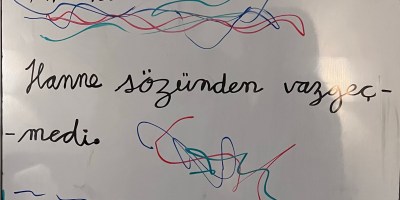 Hanne sözünden vazgeç-
-medi.